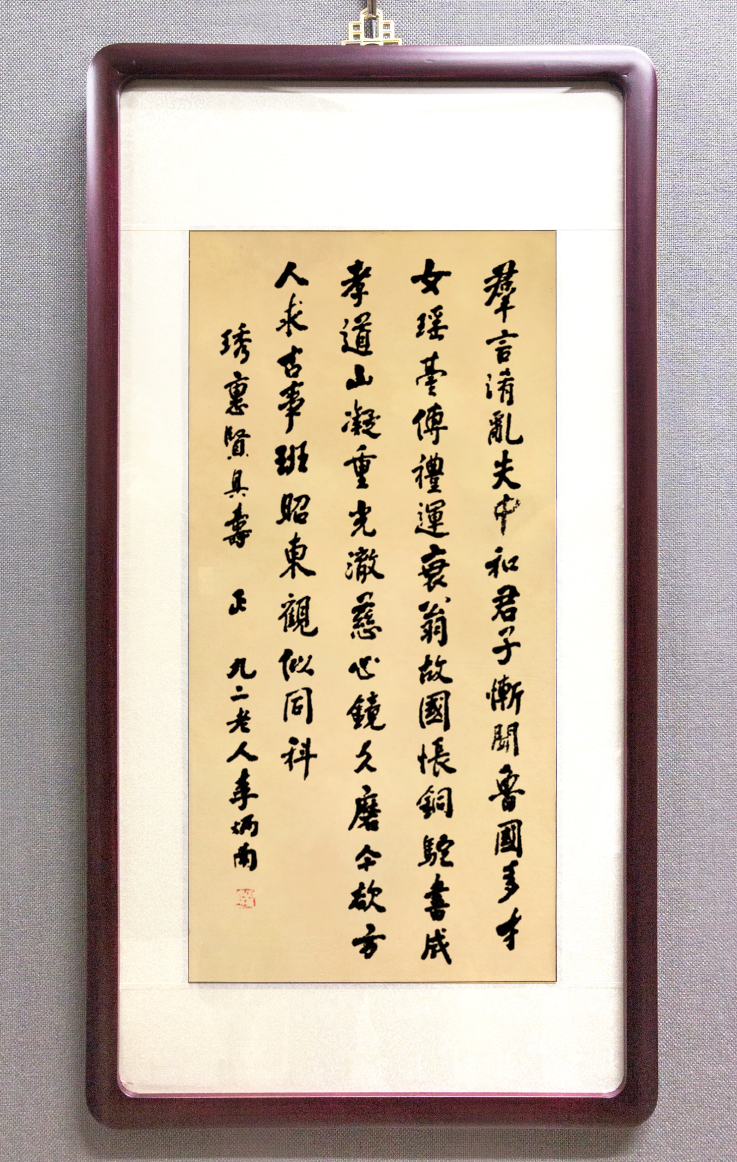 羣言淆亂失中和君子慚聞魯國多才
女瑶臺傳禮運衰翁故國悵銅駝書成
孝道山凝重光澈慈心鏡久磨今欲方
人求古事班昭東觀似同科
琇惠賢具壽 正 九二老人李炳南